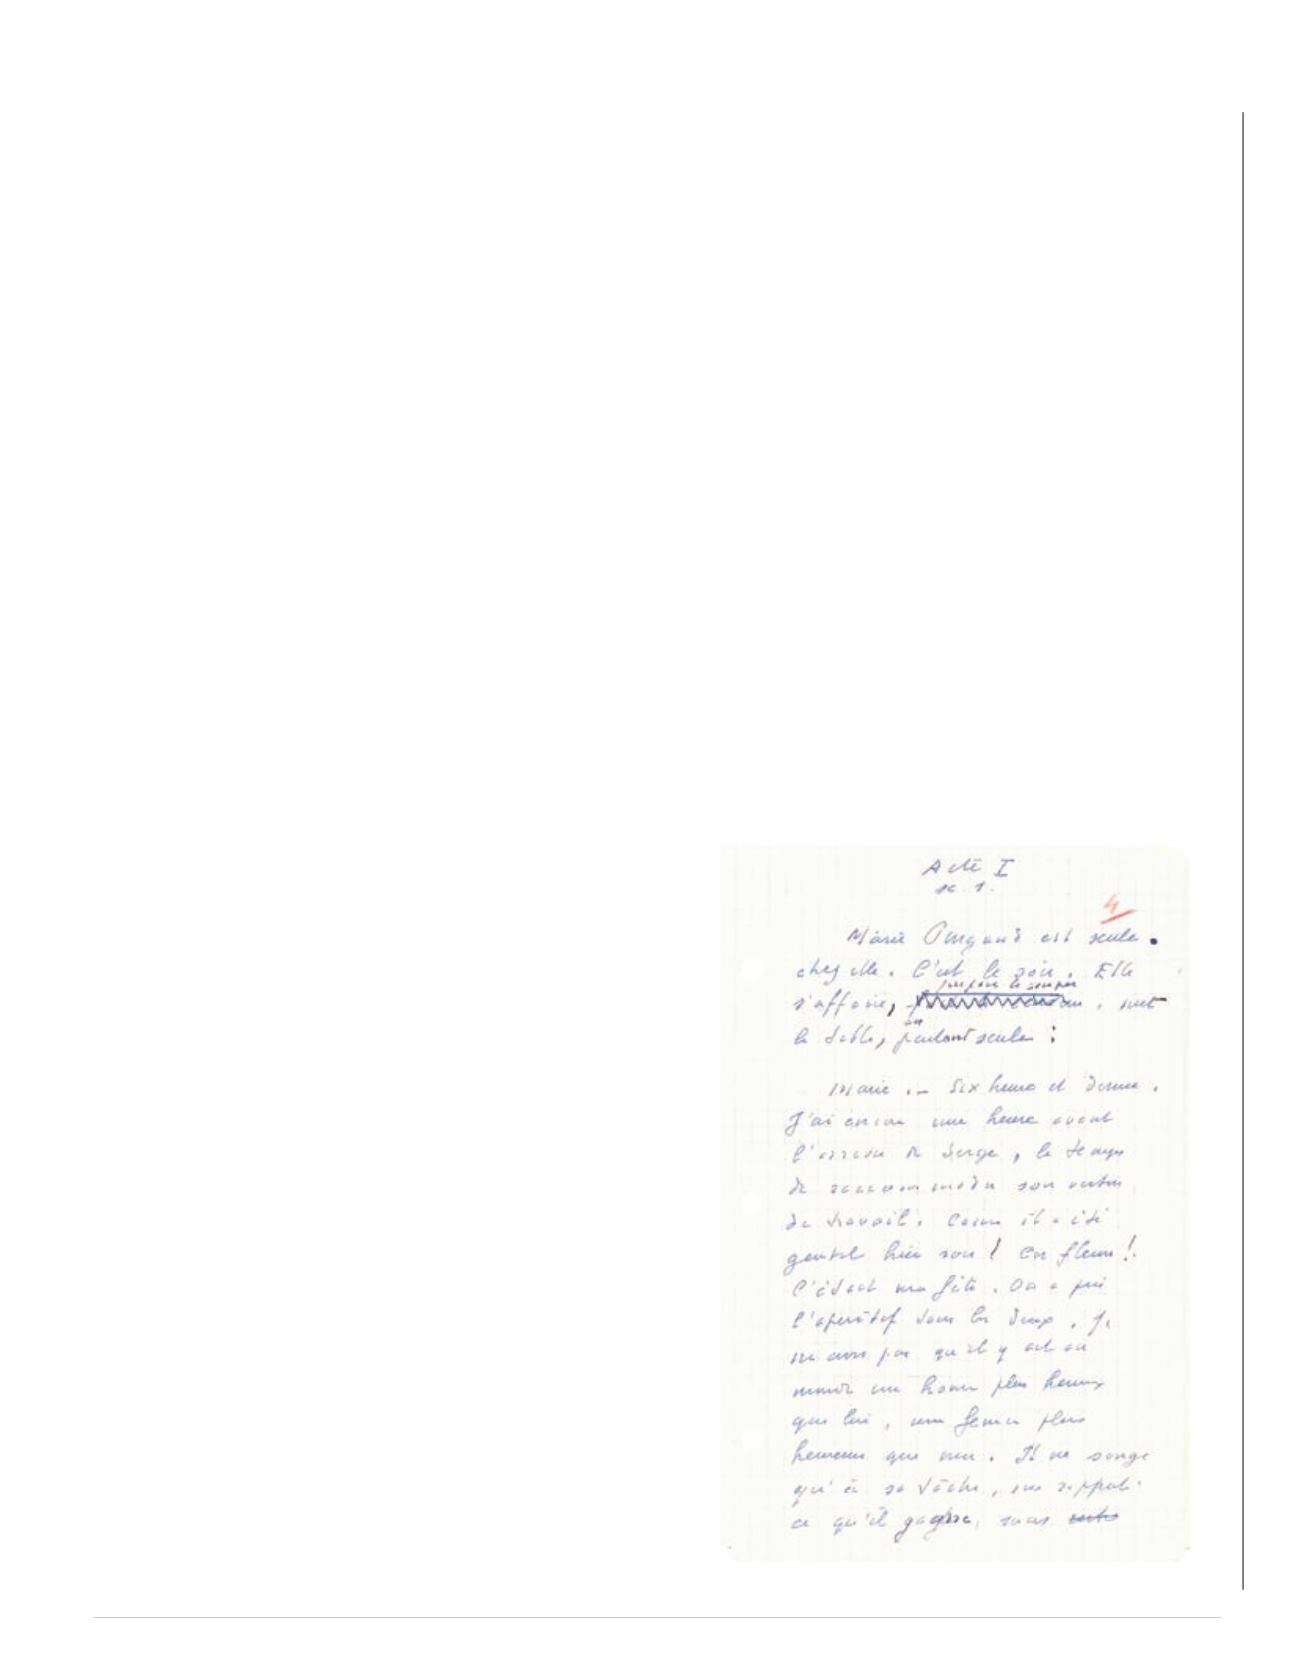 Acte I
sc. 1.
4
Marie est seule.
chez elle. C'est le soir. Elle
prépare le souper
s'affaire, met
la table, parlant seule :
en
Marie .— Six heures et demie.
J'ai encore une heure avant
l'arrivée de Serge, le temps
de raccommoder son veston
de travail. Comme il a été
gentil hier soir ! Ces fleurs !
C'était ma fête. On a pris
l'apéritif tous les deux. Je
ne crois pas qu'il y ait au
monde un homme plus heureux
que lui, une femme plus
heureuse que moi. Il ne songe
qu'à sa tâche, me
ce qu'il gagne, sans